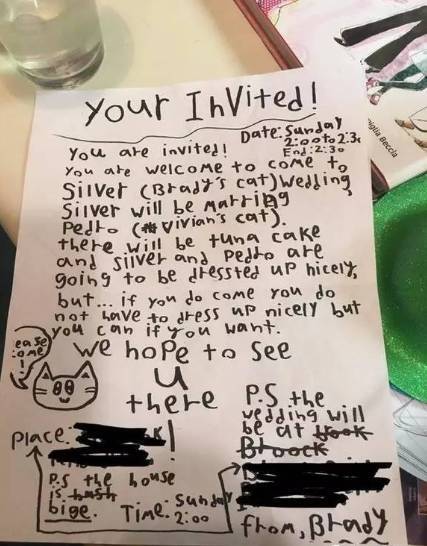 Your Invited!
Date: Sunday
2:00 to 2:3
End: 2:30
You are invited!
You are welcome to come to
Silver (Brady's cat) wedding
Silver will be Marring
Pedro (Vivian's cat).
there will be tuna cake
and Silver and Pedro are
going to be dressted up nicely,
but... if you do come you do
not have to dress up nicely but
you can if you want.
ease
ome
!
We hope to see
u
there
!
P.S the
wedding will
be at
Place:
P.S the house
is
bige.
Time: Sunday
2:00
from, Brady
Beccia